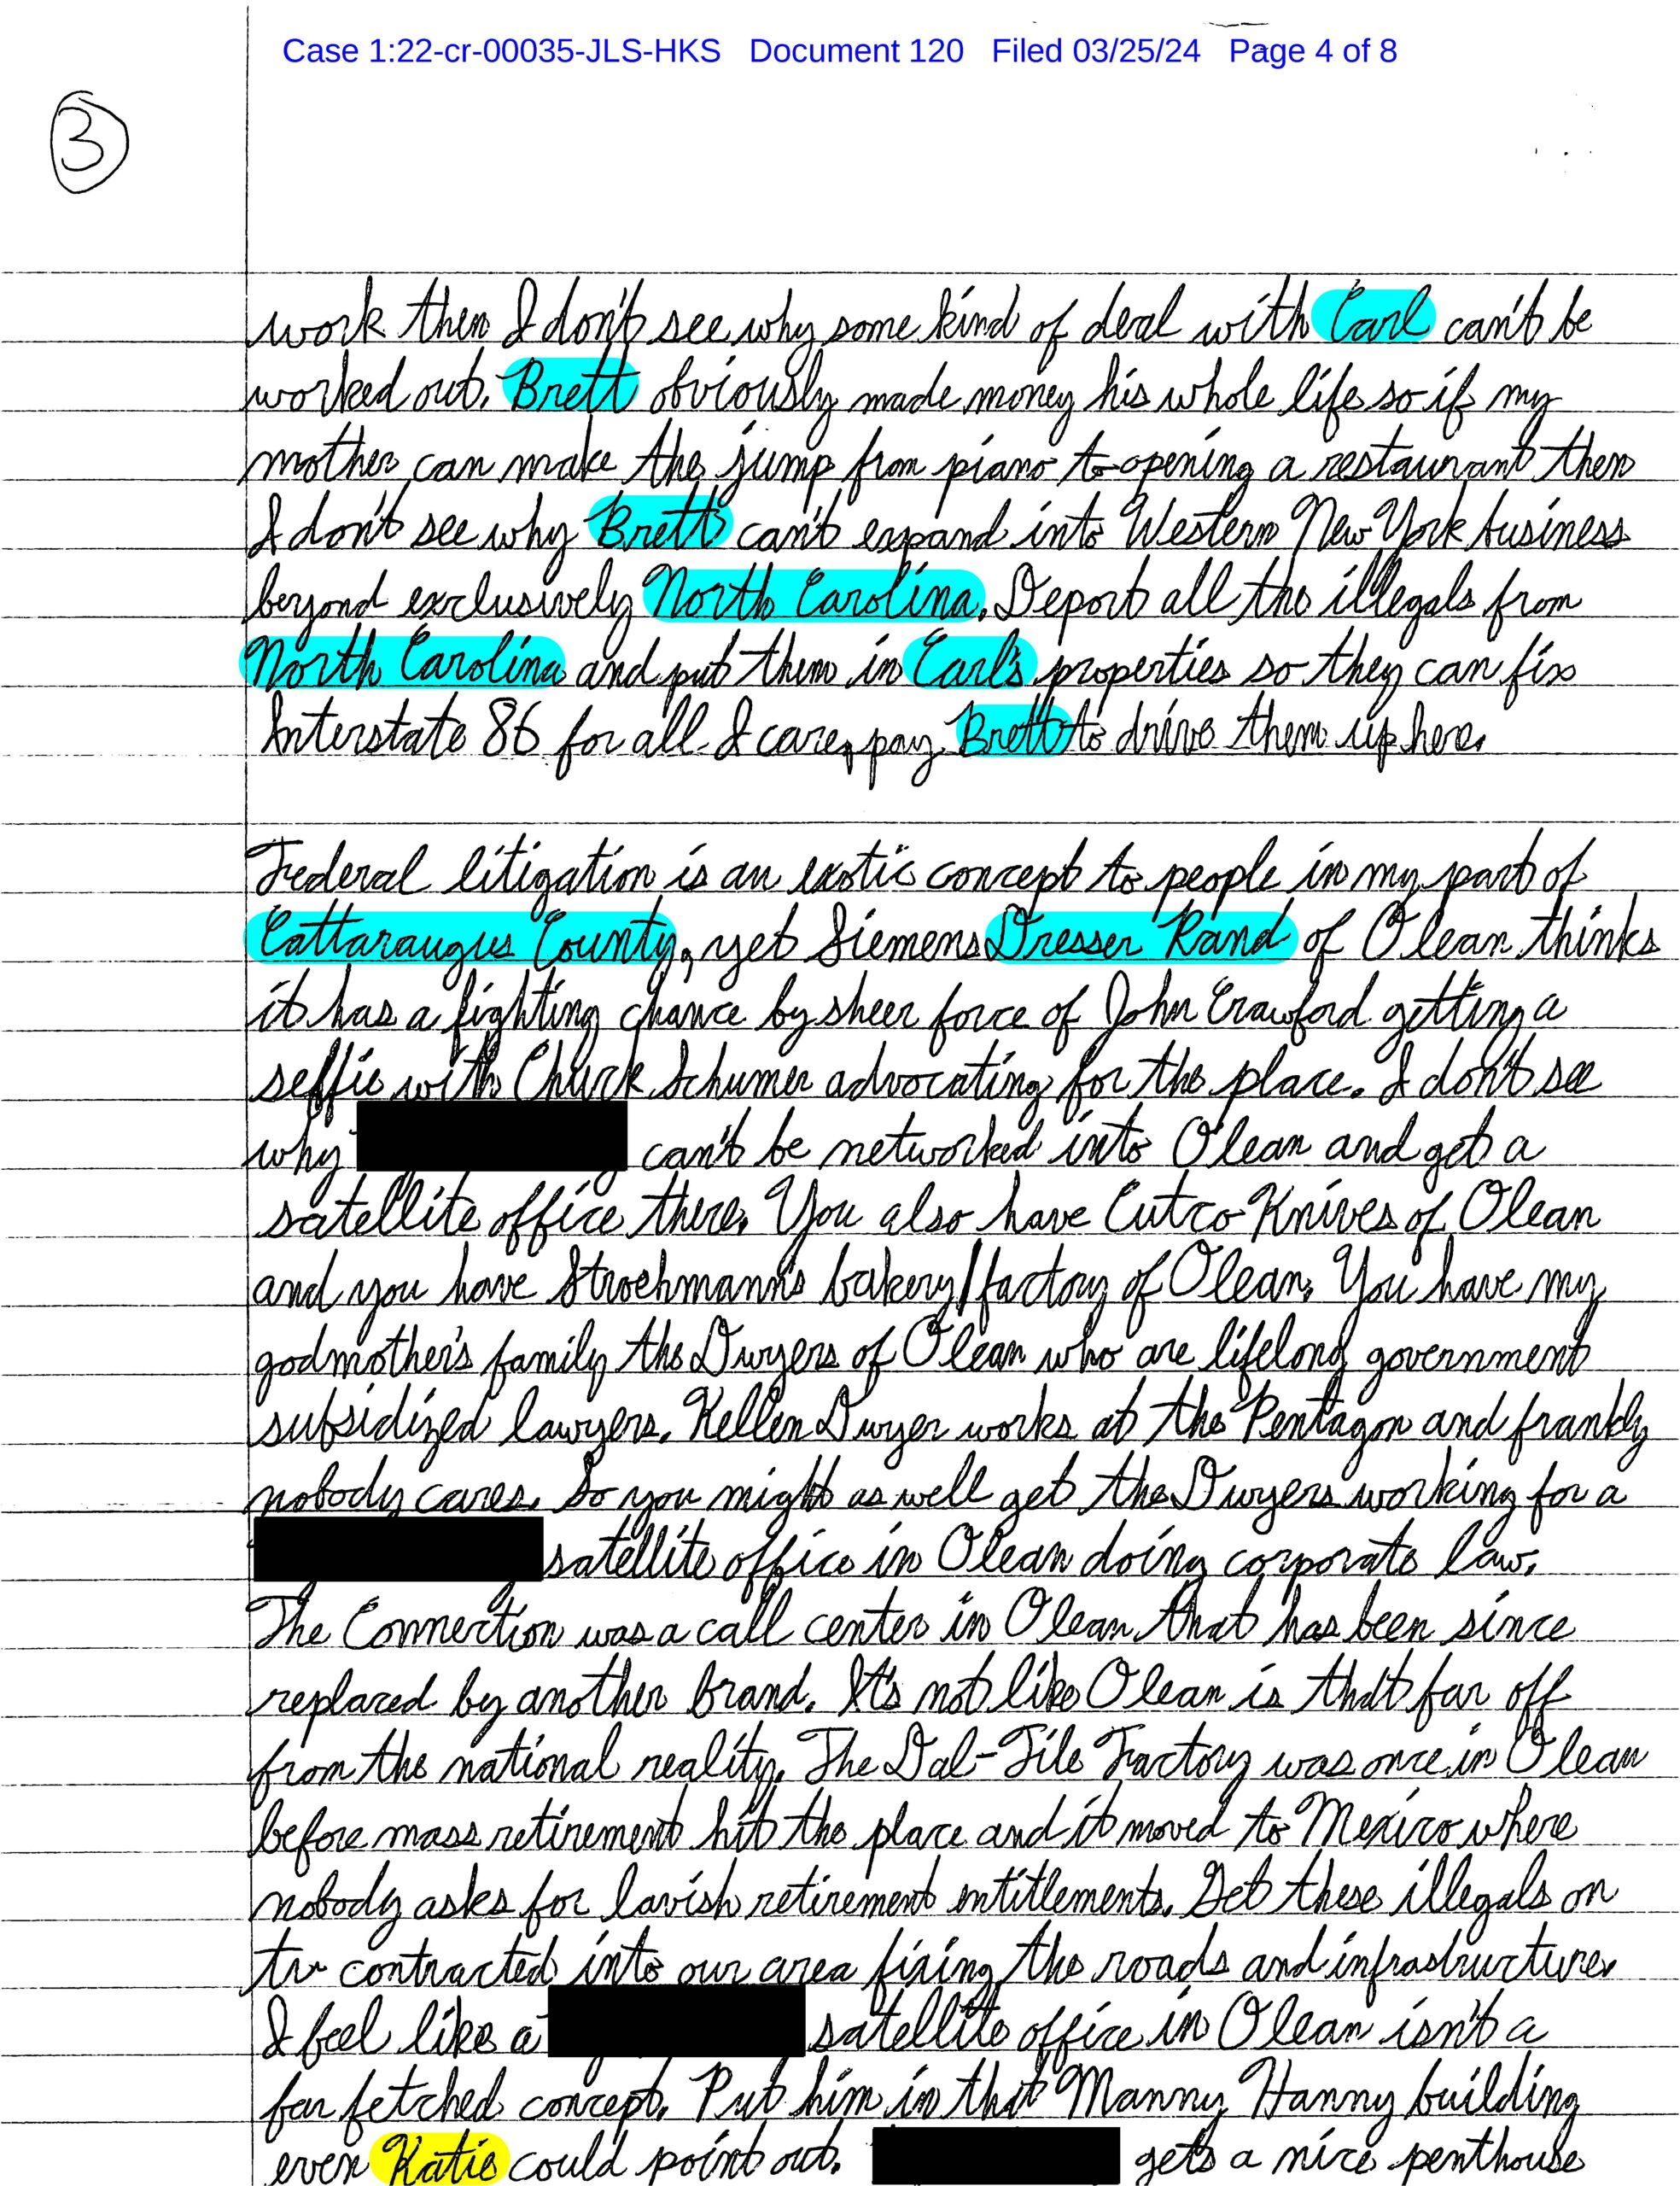 Case 1:22-cr-00035-JLS-HKS Document 120 Filed 03/25/24 Page 4 of 8
3
work then I don't see why some kind of deal with Carl can't be
worked out. Brett obviously made money his whole life so if my
mother can make the jump from piano to opening a restaurant then
I don't see why Brett can't expand into Western New York business
beyond exclusively North Carolina. Deport all the illegals from
North Carolina and put them in Carl's properties so they can fix
Interstate 86 for all I care, pay Brett to drive them up here.
Federal litigation is an exotic concept to people in my part of
Cattaraugus County, yet Siemens Dresser Rand of Olean thinks
it has a fighting chance by sheer force of John Crawford getting a
selfie with Chuck Schumer advocating for the place. I don't see
why can't be networked into Olean and get a
satellite office there. You also have Cutco Knives of Olean
and you have Stroehmann's bakery/factory of Olean. You have my
godmother's family the Dwyers of Olean who are lifelong government
subsidized lawyers. Kellen Dwyer works at the Pentagon and frankly
nobody cares. So you might as well get the Dwyers working for a
satellite office in Olean doing corporate law.
The Connection was a call center in Olean that has been since
replaced by another brand. It's not like Olean is that far off
from the national reality. The Dal-Tile Factory was once in Olean
before mass retirement hit the place and it moved to Mexico where
nobody asks for lavish retirement entitlements. Get these illegals on
tv contracted into our area fixing the roads and infrastructure.
I feel like a satellite office in Olean isn't a
far fetched concept. Put him in that Manny Hanny building
even Katie could point out. gets a nice penthouse